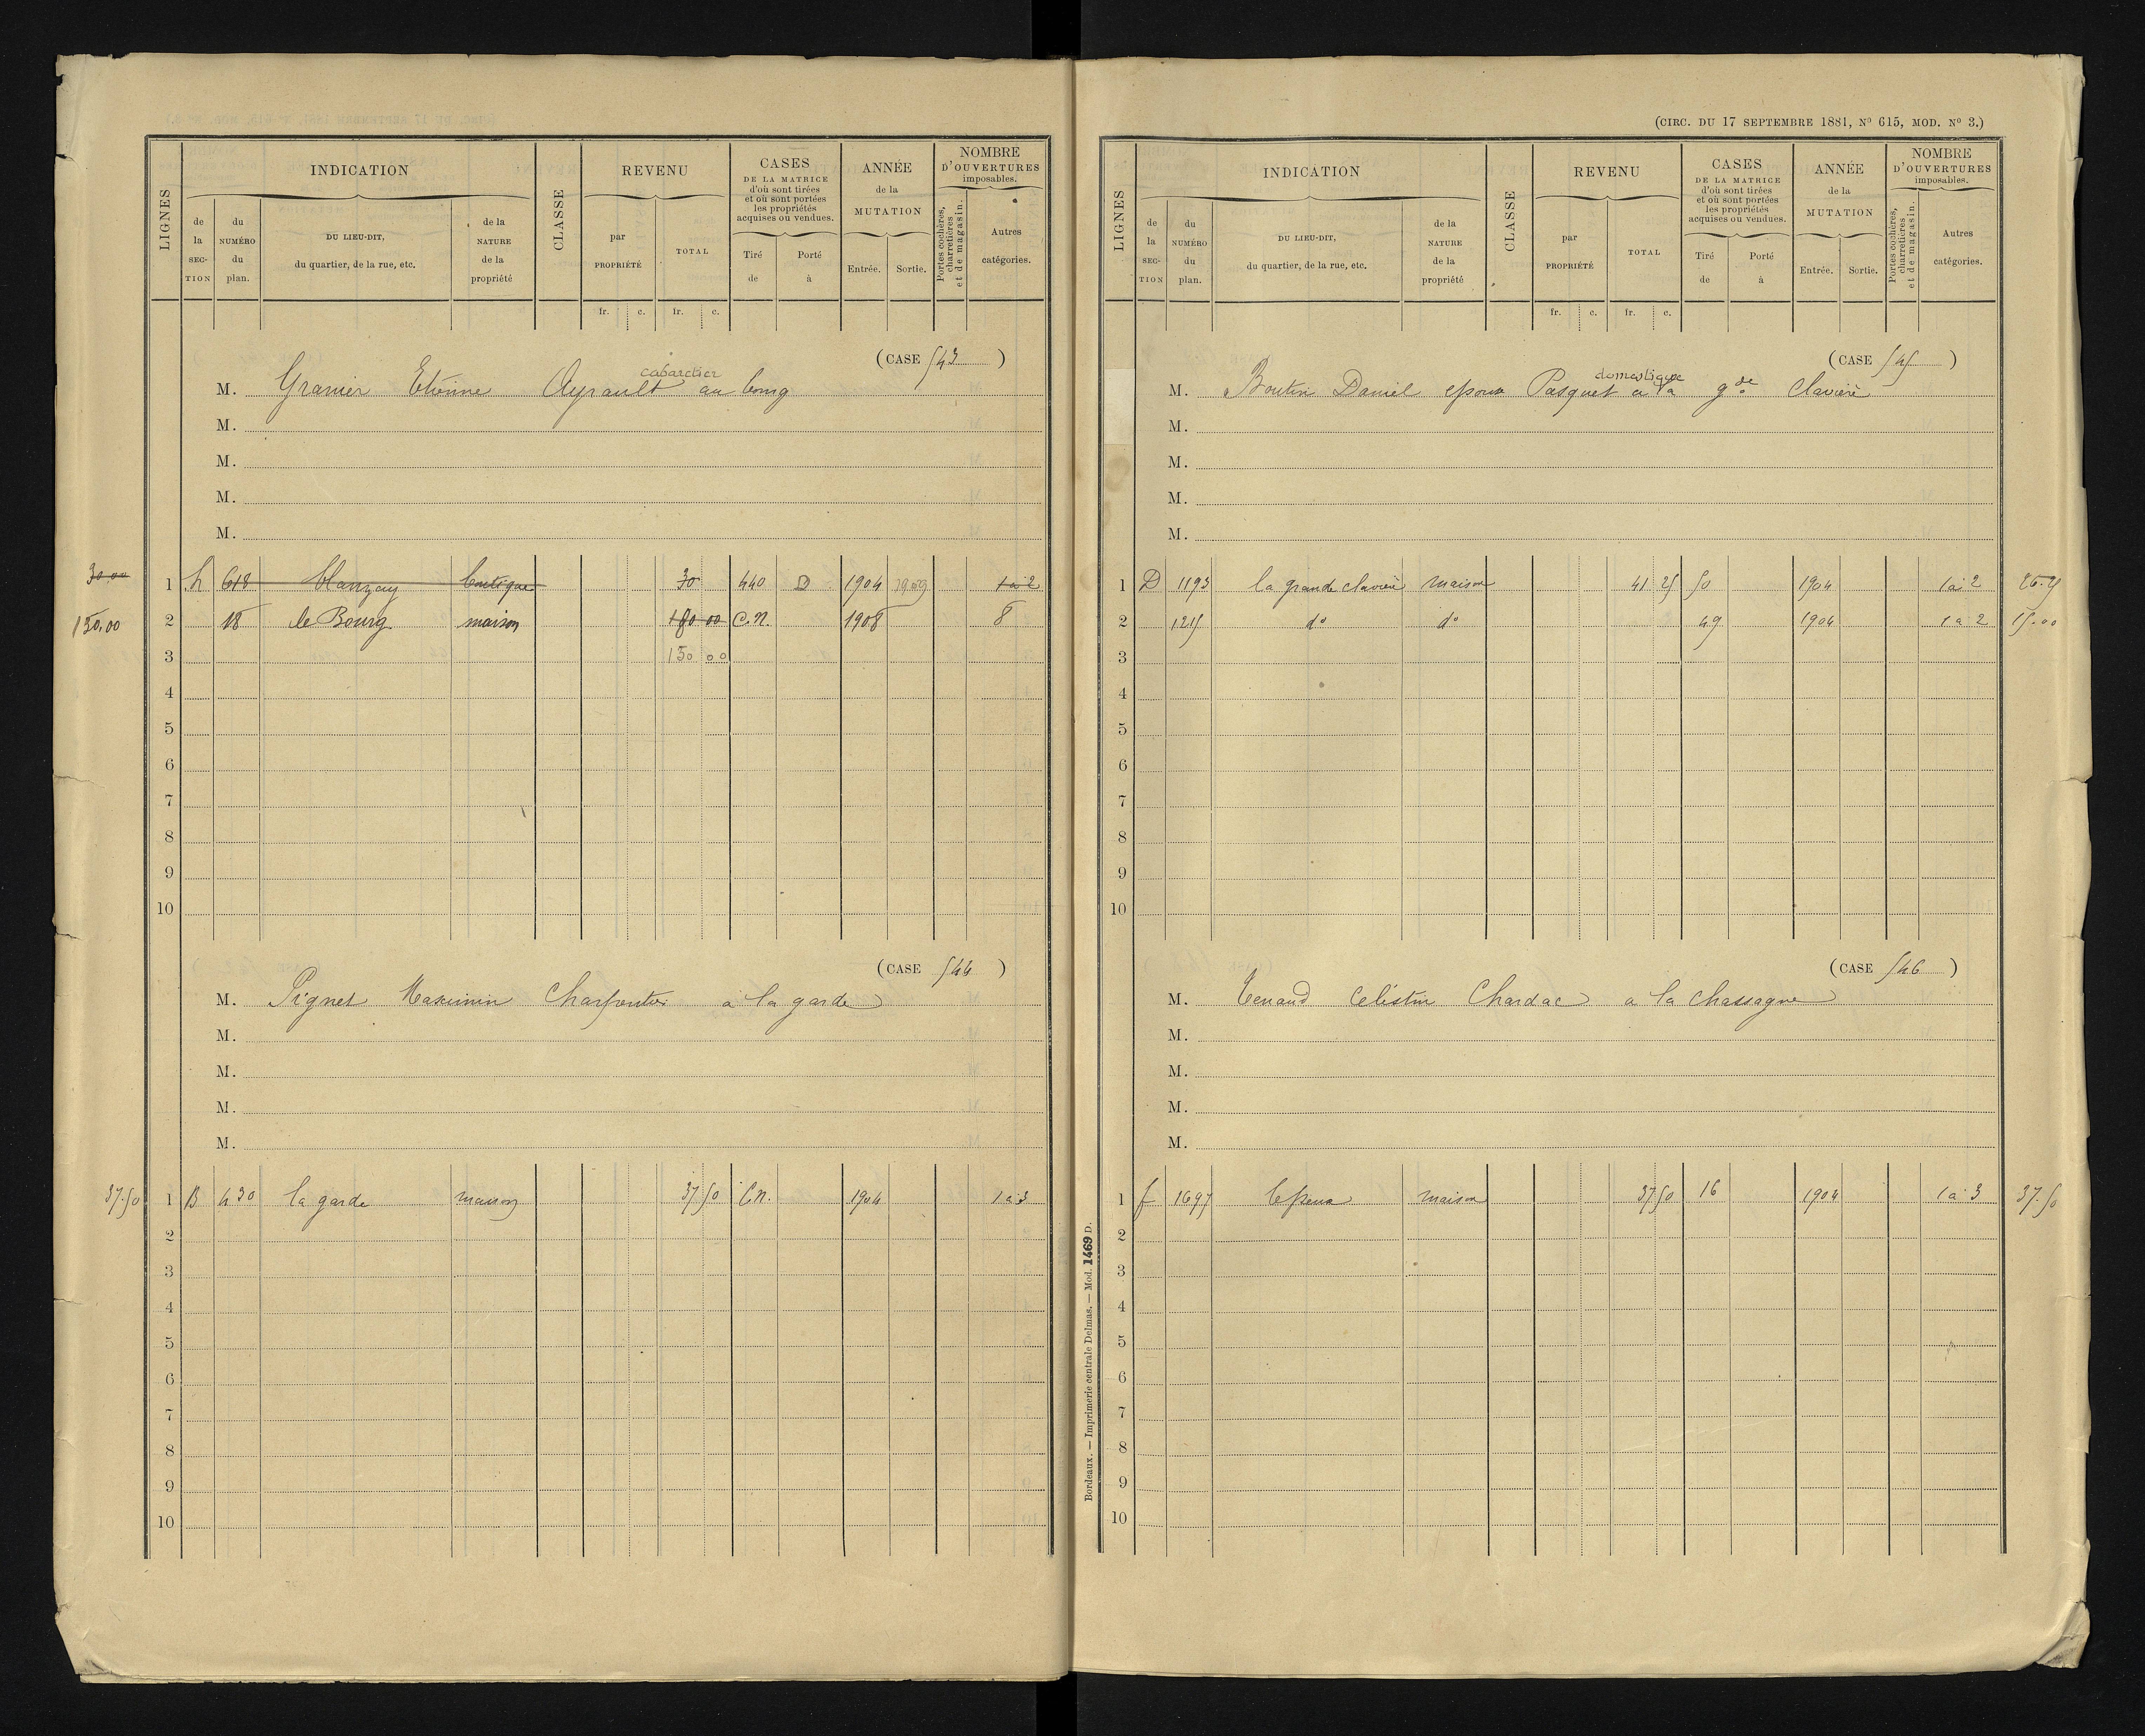 LIGNES
INDICATION
de la SECTION
du NUMÉRO du plan.
DU LIEU-DIT, du quartier, de la rue, etc.
de la NATURE de la propriété
CLASSE
REVENU
par PROPRIÉTÉ
TOTAL
CASES DE LA MATRICE d'où sont tirées et où sont portées les propriétés acquises ou vendues.
Tiré de
Porté à
ANNÉE de la MUTATION
Entrée.
Sortie.
NOMBRE D'OUVERTURES imposables.
Portes cochères, charretières et de magasin.
Autres catégories.
fr. c. fr. c.
(CASE 543)
cabaretier
M. Granier Etienne Ayrault au bourg
M.
M.
M.
M.
30.00 1 h 618 Blanzay boutique 30 440 D 1904 1909 1 à 2
150.00 2 18 le Bourg maison 180 00 C.N. 1908 8
3 150 00
4
5
6
7
8
9
10
(CASE 544)
M. Pignet Maximin Charpentier à la garde
M.
M.
M.
M.
37.50 1 B 430 la garde maison 37 50 C.N. 1904 1 à 3
2
3
4
5
6
7
8
9
10
(CIRC. DU 17 SEPTEMBRE 1881, Nº 615, MOD. Nº 3.)
LIGNES
INDICATION
de la SECTION
du NUMÉRO du plan.
DU LIEU-DIT, du quartier, de la rue, etc.
de la NATURE de la propriété
CLASSE
REVENU
par PROPRIÉTÉ
TOTAL
CASES DE LA MATRICE d'où sont tirées et où sont portées les propriétés acquises ou vendues.
Tiré de
Porté à
ANNÉE de la MUTATION
Entrée.
Sortie.
NOMBRE D'OUVERTURES imposables.
Portes cochères, charretières et de magasin.
Autres catégories.
fr. c. fr. c.
(CASE 545)
domestique
M. Boutin Daniel époux Pasquet à la gde Clavière
M.
M.
M.
M.
1 D 1193 la grande clavière maison 41 25 50 1904 1 à 2 26.25
2 1215 do do 49 1904 1 à 2 15.00
3
4
5
6
7
8
9
10
(CASE 546)
M. Célestin Chardac à la Chassagne
M.
M.
M.
M.
1 f 1697 maison 37 50 16 1904 1 à 3 37.50
2
3
4
5
6
7
8
9
10
Bordeaux. — Imprimerie centrale Delmas. — Mod. 1469 D.